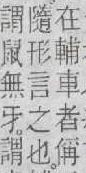 在輔車者偁
隨形言之也。
謂鼠無牙。謂